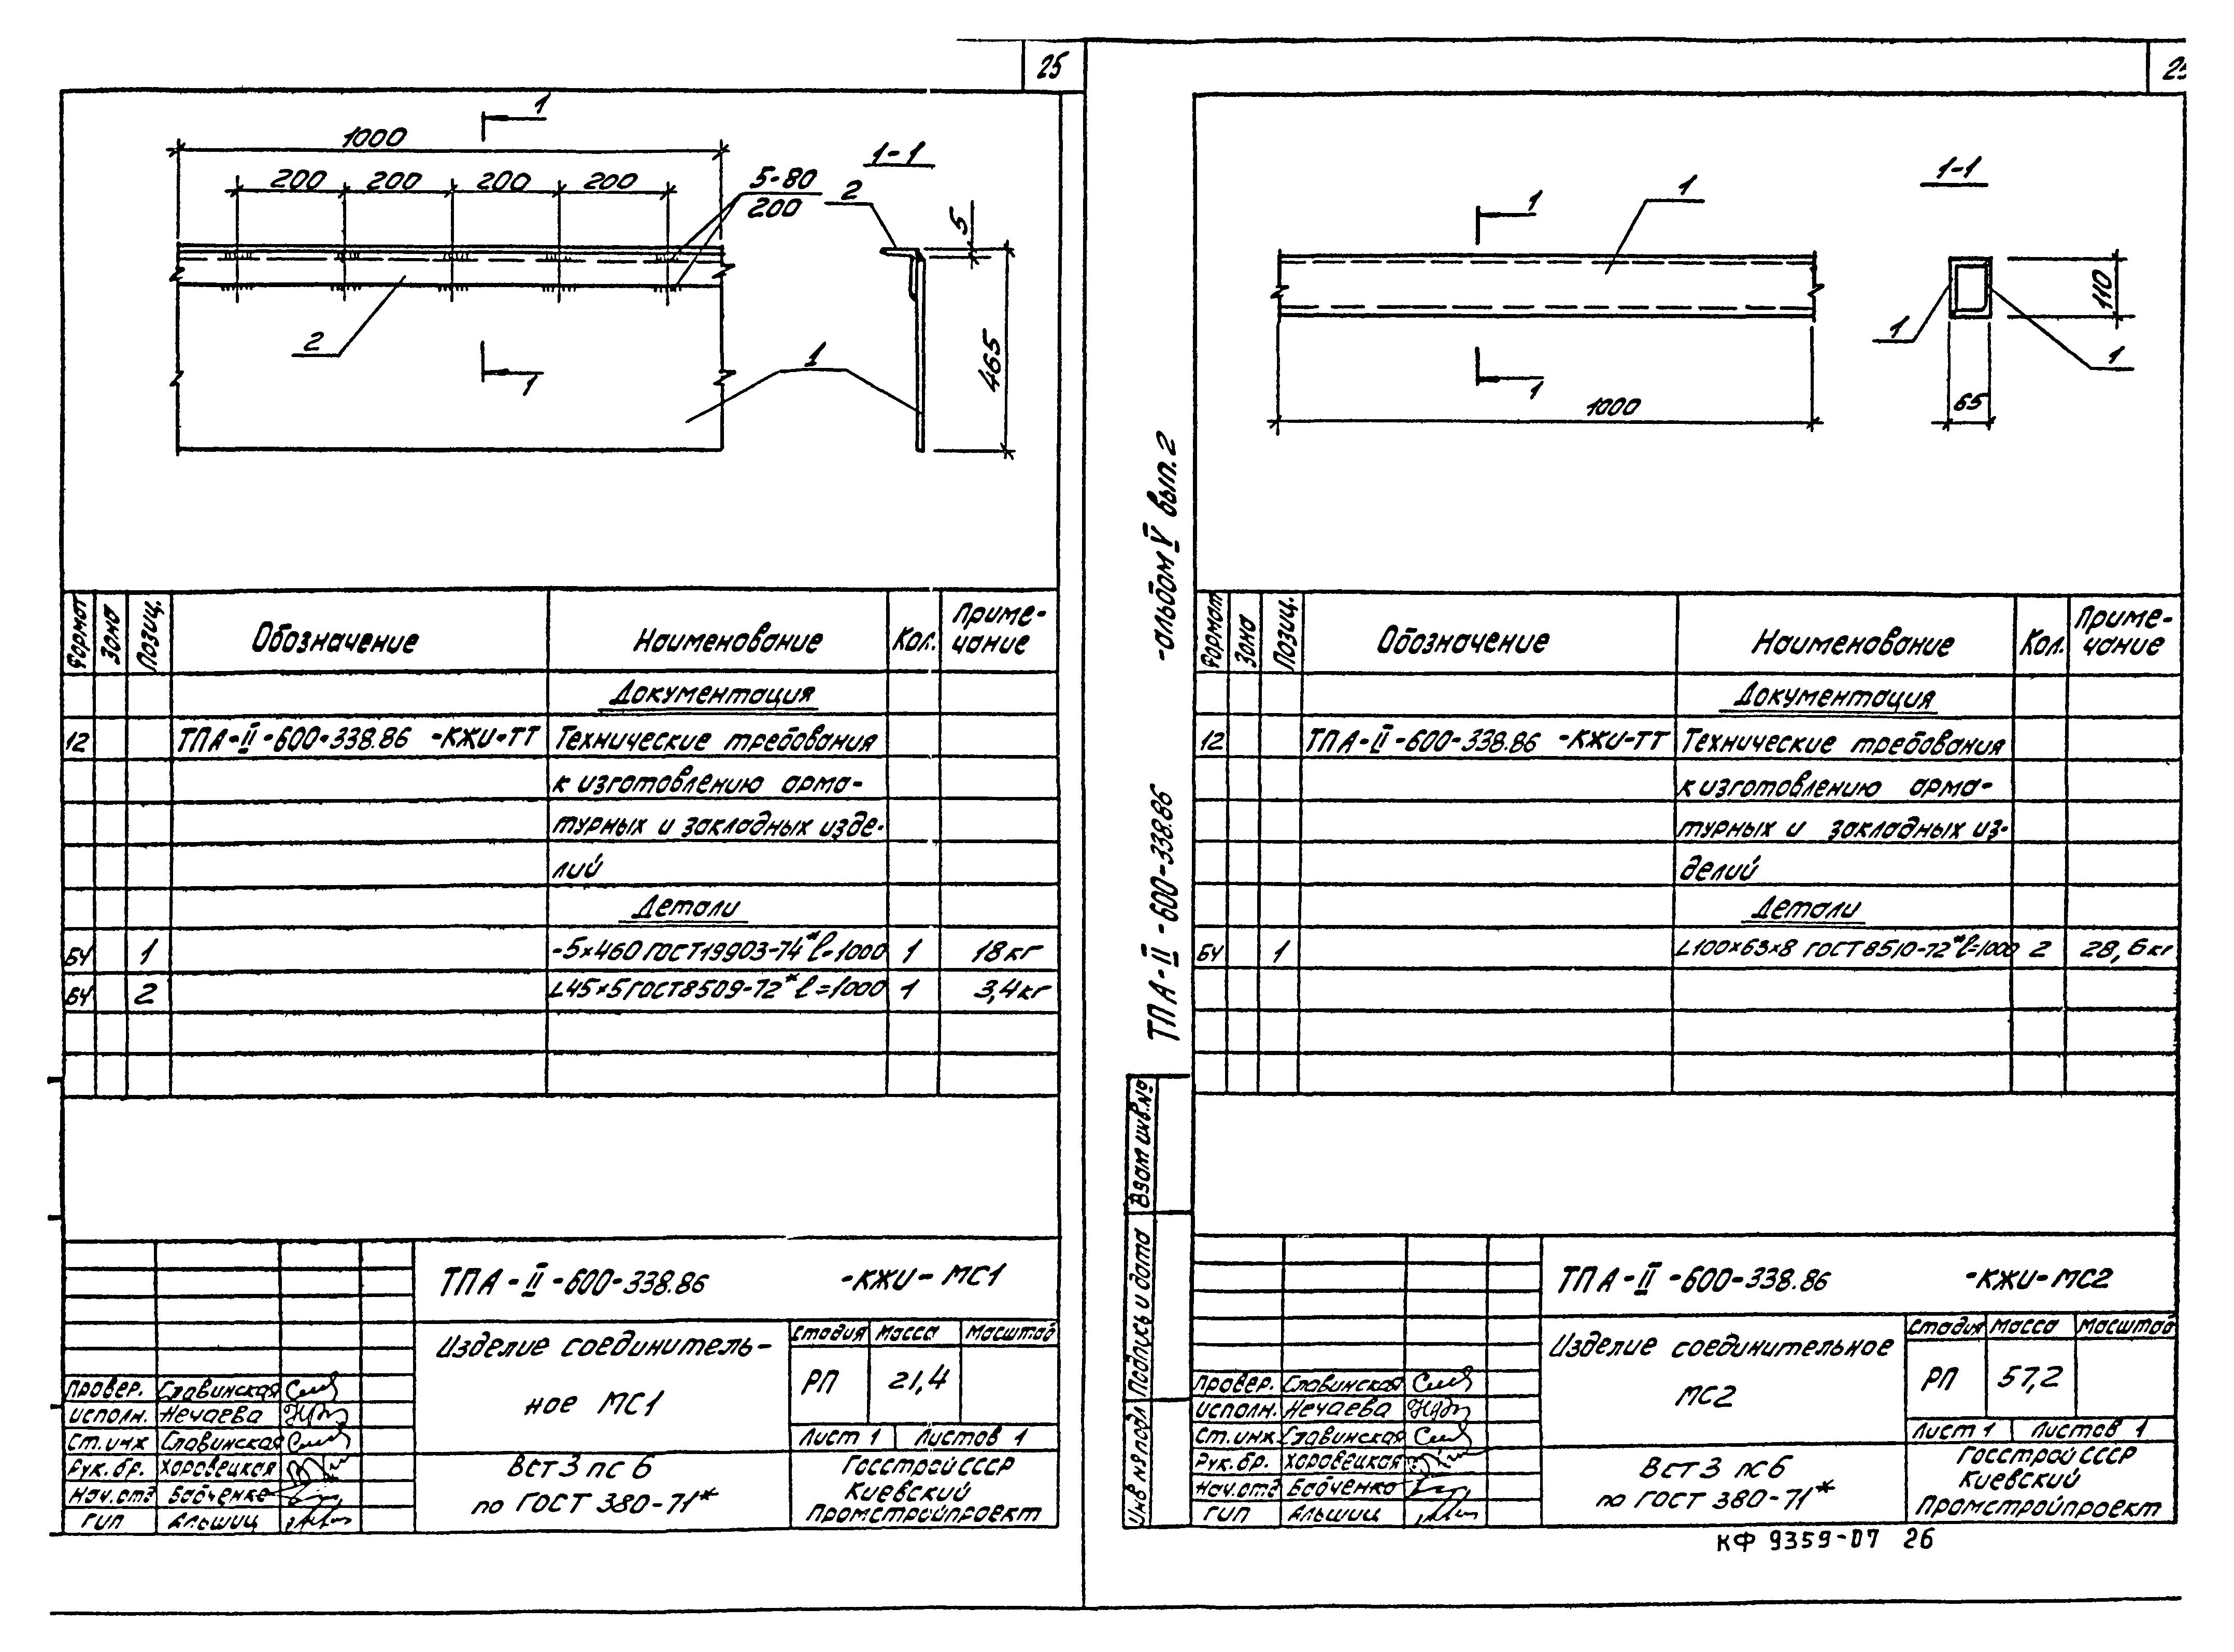 25
1
1000
1-1
200 200 200 200
5-80
200
2
5
465
2
1
1
Формат Зона Позиц. Обозначение Наименование Кол. Приме-
чание
Документация
12 ТПА-II-600-338.86 -КЖИ-ТТ Технические требования
к изготовлению арма-
турных и закладных изде-
лий
Детали
БЧ 1 -5×460 ГОСТ19903-74* l=1000 1 18кг
БЧ 2 L45×5 ГОСТ8509-72* l=1000 1 3,4кг
ТПА-II-600-338.86 -КЖИ-МС1
Изделие соединитель-
ное МС1
Стадия Масса Масштаб
РП 21,4
Лист 1 Листов 1
Провер. Славинская
Исполн. Нечаева
Ст.инж Славинская
Рук.бр. Хоровецкая
Нач.отд Бабченко
ГИП Альшиц
ВСт3 пс 6
по ГОСТ 380-71*
Госстрой СССР
Киевский
Промстройпроект
25
1
1
1-1
1
1000
1
1
110
65
ТПА-II-600-338.86 -альбом V вып.2
Формат Зона Позиц. Обозначение Наименование Кол. Приме-
чание
Документация
12 ТПА-II-600-338.86 -КЖИ-ТТ Технические требования
к изготовлению арма-
турных и закладных из-
делий
Детали
БЧ 1 L100×63×8 ГОСТ 8510-72* l=1000 2 28,6кг
Инв № подл Подпись и дата Взам инв.№
ТПА-II-600-338.86 -КЖИ-МС2
Изделие соединительное
МС2
Стадия Масса Масштаб
РП 57,2
Лист 1 Листов 1
Провер. Славинская
Исполн. Нечаева
Ст.инж. Славинская
Рук.бр. Хоровецкая
Нач.отд Бабченко
ГИП Альшиц
ВСт3 пс6
по ГОСТ 380-71*
Госстрой СССР
Киевский
Промстройпроект
КФ 9359-07 26